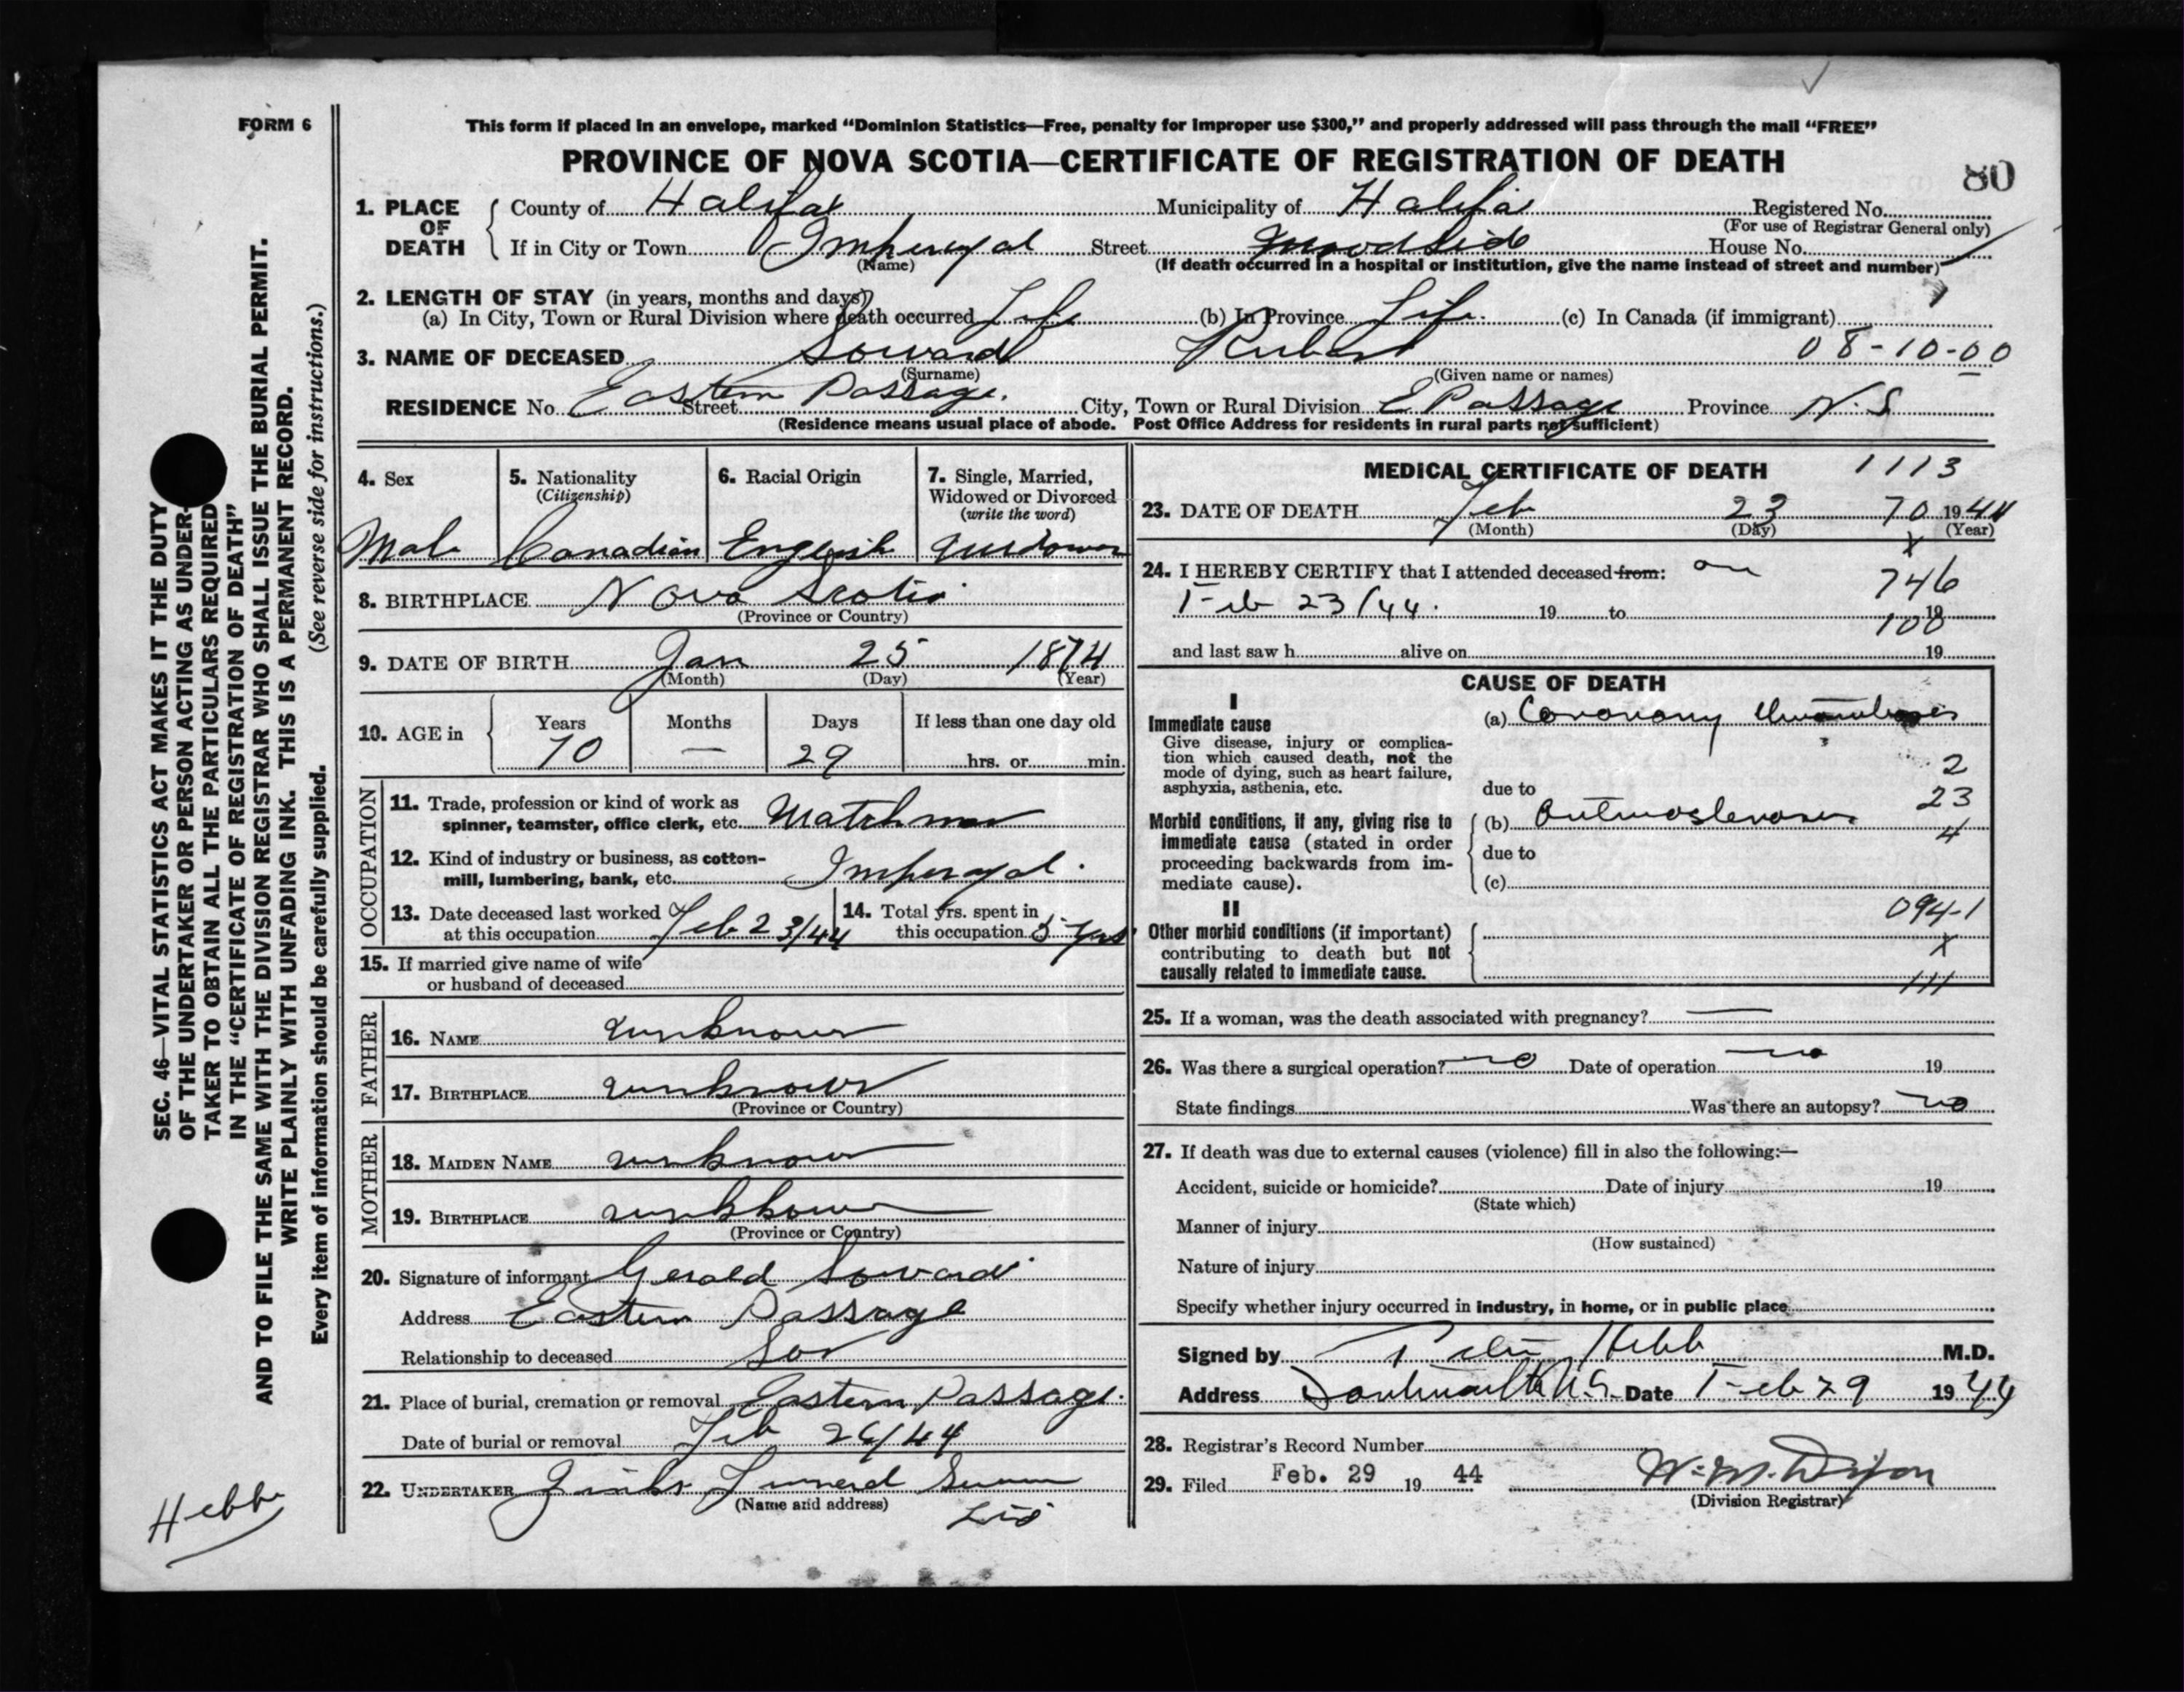 FORM 6
This form if placed in an envelope, marked “Dominion Statistics—Free, penalty for improper use $300,” and properly addressed will pass through the mail “FREE”
PROVINCE OF NOVA SCOTIA—CERTIFICATE OF REGISTRATION OF DEATH
80
1. PLACE OF DEATH
County of Halifax Municipality of Halifa Registered No.
(For use of Registrar General only)
If in City or Town Imperoyal Street Woodside House No.
(Name) (If death occurred in a hospital or institution, give the name instead of street and number)
2. LENGTH OF STAY (in years, months and days)
(a) In City, Town or Rural Division where death occurred Life (b) In Province Life. (c) In Canada (if immigrant)
3. NAME OF DECEASED Soward 08-10-00
(Surname) (Given name or names)
RESIDENCE No. Eastern Passage. Street City, Town or Rural Division E Passage Province N.S
(Residence means usual place of abode. Post Office Address for residents in rural parts not sufficient)
4. Sex 5. Nationality (Citizenship) 6. Racial Origin 7. Single, Married, Widowed or Divorced (write the word)
Male Canadian English Widower
8. BIRTHPLACE Nova Scotia
(Province or Country)
9. DATE OF BIRTH Jan 25 1874
(Month) (Day) (Year)
10. AGE in Years Months Days If less than one day old
70 — 29 hrs. or min.
OCCUPATION
11. Trade, profession or kind of work as spinner, teamster, office clerk, etc. Watchman
12. Kind of industry or business, as cotton-mill, lumbering, bank, etc. Imperoyal.
13. Date deceased last worked at this occupation Feb 23/44
14. Total yrs. spent in this occupation 5 yrs
15. If married give name of wife or husband of deceased
FATHER
16. NAME unknown
17. BIRTHPLACE unknown
(Province or Country)
MOTHER
18. MAIDEN NAME unknown
19. BIRTHPLACE unkhown
(Province or Country)
20. Signature of informant Gerald Soward
Address Eastern Passage
Relationship to deceased Son
21. Place of burial, cremation or removal Eastern Passage.
Date of burial or removal Feb 26/44
22. UNDERTAKER Funeral
(Name and address)
Ltd
MEDICAL CERTIFICATE OF DEATH 1113
23. DATE OF DEATH Feb 23 70 1944
(Month) (Day) (Year)
x
24. I HEREBY CERTIFY that I attended deceased from: on
746
Feb 23/44. 19 to 19
100
and last saw h alive on 19
CAUSE OF DEATH
I
Immediate cause
Give disease, injury or complication which caused death, not the mode of dying, such as heart failure, asphyxia, asthenia, etc.
(a) Coronary thrombosis
2
due to
23
Morbid conditions, if any, giving rise to immediate cause (stated in order proceeding backwards from immediate cause).
(b) Arteriosclerosis
4
due to
(c)
094-1
II
Other morbid conditions (if important) contributing to death but not causally related to immediate cause.
X
111
25. If a woman, was the death associated with pregnancy? —
26. Was there a surgical operation? no Date of operation no 19
State findings Was there an autopsy? no
27. If death was due to external causes (violence) fill in also the following:—
Accident, suicide or homicide? Date of injury 19
(State which)
Manner of injury
(How sustained)
Nature of injury
Specify whether injury occurred in industry, in home, or in public place
Signed by Hebb M.D.
Address Dartmouth N.S. Date Feb 29 1944
28. Registrar's Record Number
29. Filed Feb. 29 19 44 W. M. Dixon
(Division Registrar)
SEC. 46—VITAL STATISTICS ACT MAKES IT THE DUTY
OF THE UNDERTAKER OR PERSON ACTING AS UNDER-
TAKER TO OBTAIN ALL THE PARTICULARS REQUIRED
IN THE “CERTIFICATE OF REGISTRATION OF DEATH”
AND TO FILE THE SAME WITH THE DIVISION REGISTRAR WHO SHALL ISSUE THE BURIAL PERMIT.
WRITE PLAINLY WITH UNFADING INK. THIS IS A PERMANENT RECORD.
Every item of information should be carefully supplied. (See reverse side for instructions.)
Hebb